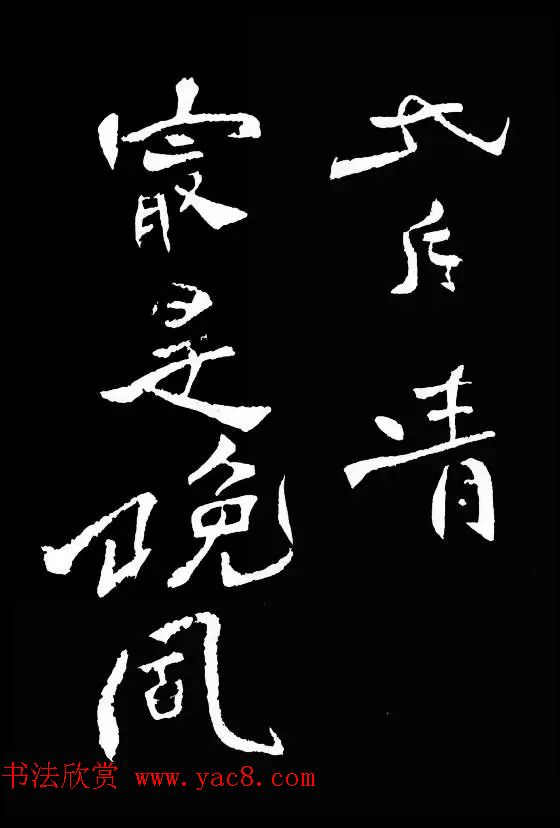 清
最是晚風
书法欣赏 www.yac8.com